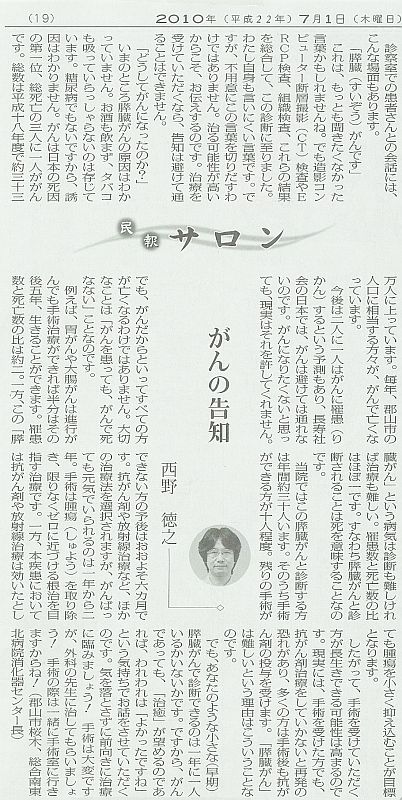 (19)
2010年（平成22年）7月1日（木曜日）
診察室での患者さんとの会話には、
こんな場面もあります。
「膵臓（すいぞう）がんです」
これは、もっとも聞きたくなかった
言葉かもしれませんね。でも造影コン
ピューター断層撮影（CT）検査やE
RCP検査、組織検査、これらの結果
を総合して、この診断に至りました。
わたし自身も言いにくい言葉です。で
すが、不用意にこの言葉を切りだすわ
けではありません。治る可能性が高い
からこそ、お伝えするのです。治療を
受けていただくなら、告知は避けて通
ることはできません。
「どうしてがんになったのか？」
いまのところ膵臓がんの原因はわか
っていません。お酒も飲まず、タバコ
も吸っていらっしゃらないのは存じて
います。糖尿病でもないですから、誘
因はわかりません。がんは日本の死因
の第一位、総死亡の三人に一人ががん
です。総数は平成十八年度で約三十三
民報サロン
万人に上っています。毎年、郡山市の
人口に相当する方々が、がんで亡くな
っています。
今後は二人に一人はがんに罹患（り
かん）するという予測もあり、長寿社
会の日本では、がんは避けては通れな
いのです。がんになりたくないと思っ
ても、現実はそれを許してくれません。
がんの告知
西野 徳之
でも、がんだからといってすべての方
が亡くなるわけではありません。大切
なことは「がんを患っても、がんで死
なない」ことなのです。
例えば、胃がんや大腸がんは進行が
んでも手術治療ができれば半分はその
後五年、生きることができます。罹患
数と死亡数の比は約二。一方、この「膵
臓がん」という病気は診断も難しけれ
ば治療も難しい。罹患数と死亡数の比
はほぼ一です。すなわち膵臓がんと診
断されることは死を意味することなの
です。
当院ではこの膵臓がんと診断する方
は年間約三十人います。そのうち手術
ができる方が十人程度。残りの手術が
できない方の予後はおおよそ六カ月で
す。抗がん剤や放射線治療など、ほか
の治療法を選択されますが、がんばっ
ても元気でいられるのは一年から二
年。手術は腫瘍（しゅよう）を取り除
き、限りなくゼロに近づける根治を目
指す治療です。一方、本疾患において
は抗がん剤や放射線治療は効いたとし
ても腫瘍を小さく抑え込むことが目標
となります。
したがって、手術を受けていただく
方が長生きできる可能性は高まるので
す。現実には、手術を受けた方でも、
抗がん剤治療をしていかないと再発の
恐れがあり、多くの方は手術後も抗が
ん剤の投与を受けます。「膵臓がん」
は難しいという理由はこういうことな
のです。
でも、あなたのような小さな（早期）
膵臓がんで診断できるのは一年に一人
いるかいないかです。ですから、がん
であっても、「治癒」が望めるのであ
れば、われわれは「よかったですね」
という気持ちでお話をさせていただく
のです。気を落とさずに前向きに治療
に臨みましょう！ 手術は大変です
が、外科の先生に治してもらいましょ
う！ 手術の際は一緒に手術室に行き
ますからね！（郡山市桜木、総合南東
北病院消化器センター長）